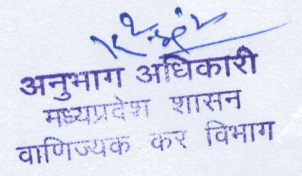 अनुभाग अधिकारी
मध्यप्रदेश शासन
वाणिज्यिक कर विभाग